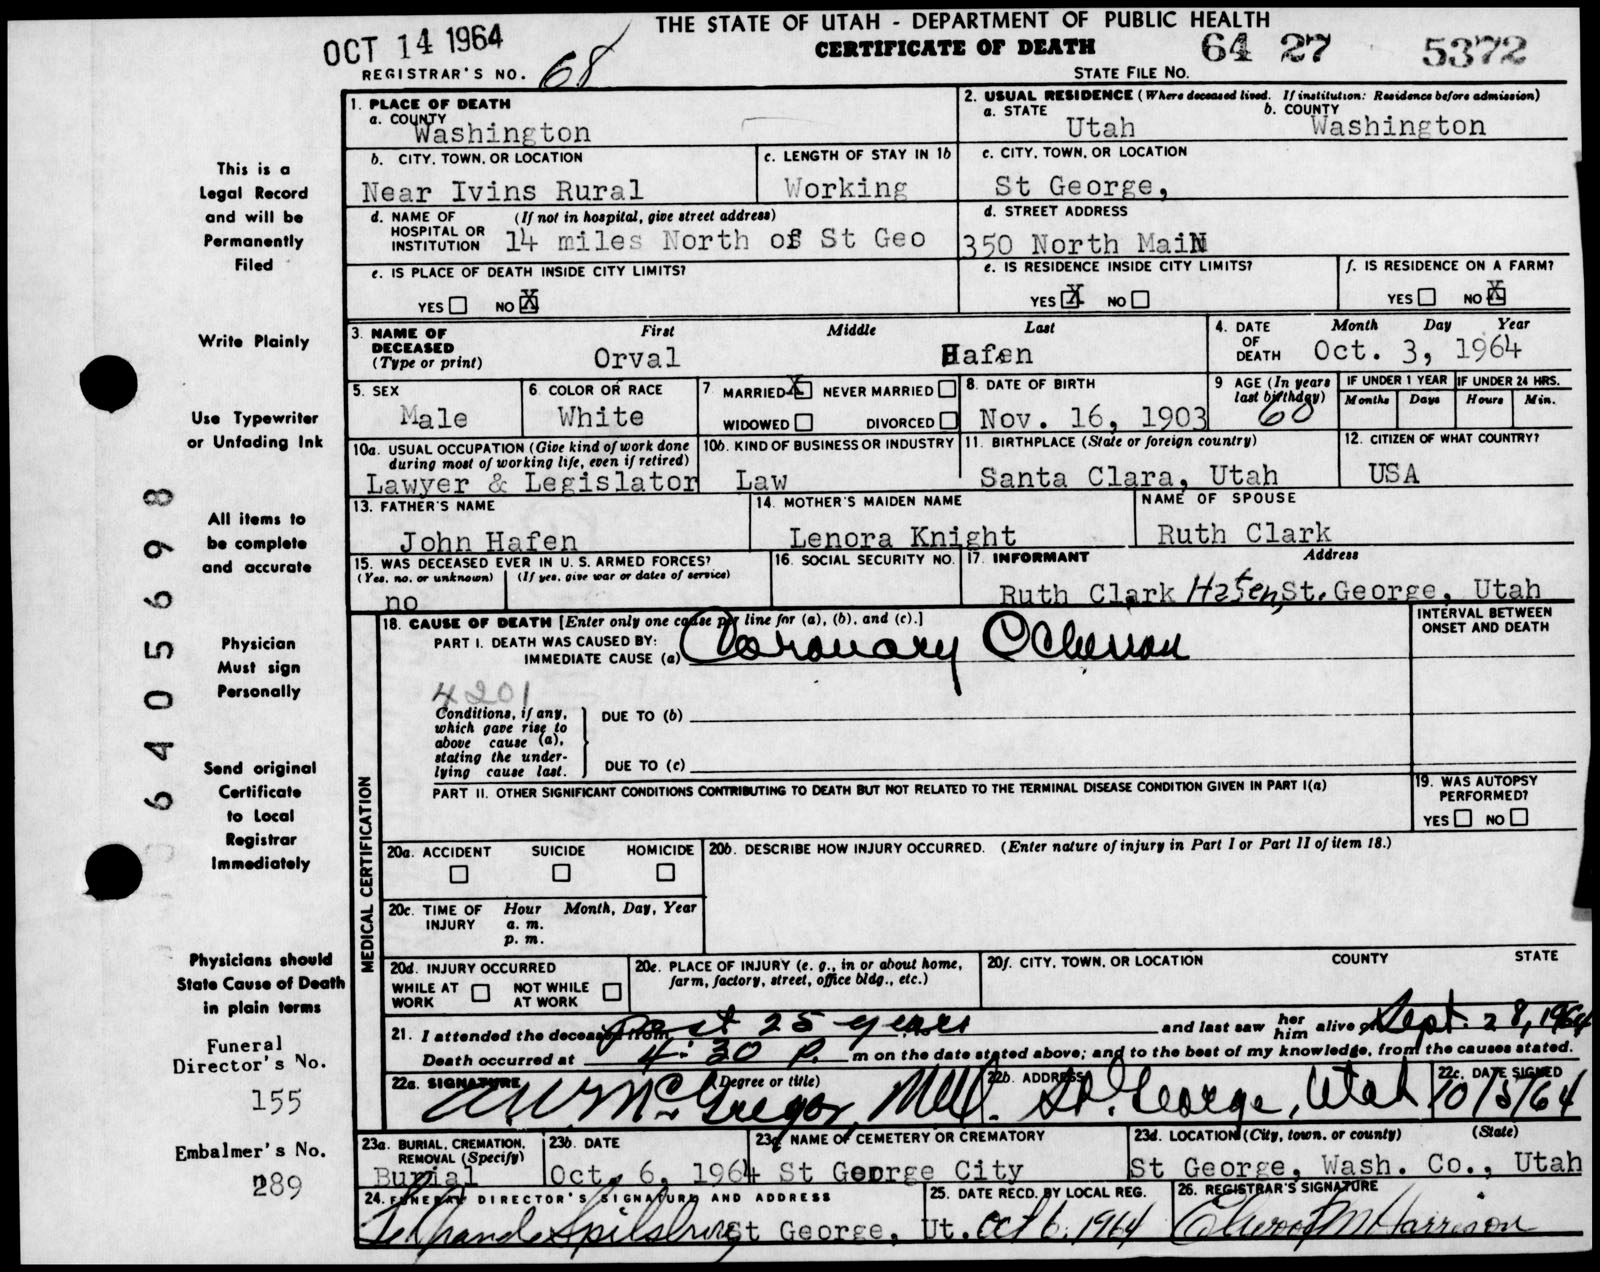 THE STATE OF UTAH - DEPARTMENT OF PUBLIC HEALTH
OCT 14 1964
CERTIFICATE OF DEATH
64 27 5372
REGISTRAR'S NO. 68
STATE FILE NO.
1. PLACE OF DEATH
a. COUNTY
Washington
2. USUAL RESIDENCE (Where deceased lived. If institution: Residence before admission)
a. STATE
Utah
b. COUNTY
Washington
b. CITY, TOWN, OR LOCATION
Near Ivins Rural
c. LENGTH OF STAY IN 1b
Working
c. CITY, TOWN, OR LOCATION
St George,
d. NAME OF HOSPITAL OR INSTITUTION
(If not in hospital, give street address)
14 miles North of St Geo
d. STREET ADDRESS
350 North MaiN
e. IS PLACE OF DEATH INSIDE CITY LIMITS?
YES NO X
e. IS RESIDENCE INSIDE CITY LIMITS?
YES X NO
f. IS RESIDENCE ON A FARM?
YES NO X
3. NAME OF DECEASED
(Type or print)
First
Middle
Last
Orval
Hafen
4. DATE OF DEATH
Month Day Year
Oct. 3, 1964
5. SEX
Male
6. COLOR OR RACE
White
7 MARRIED X NEVER MARRIED
WIDOWED DIVORCED
8. DATE OF BIRTH
Nov. 16, 1903
9 AGE (In years last birthday)
60
IF UNDER 1 YEAR
Months Days
IF UNDER 24 HRS.
Hours Min.
10a. USUAL OCCUPATION (Give kind of work done during most of working life, even if retired)
Lawyer & Legislator
10b. KIND OF BUSINESS OR INDUSTRY
Law
11. BIRTHPLACE (State or foreign country)
Santa Clara, Utah
12. CITIZEN OF WHAT COUNTRY?
USA
13. FATHER'S NAME
John Hafen
14. MOTHER'S MAIDEN NAME
Lenora Knight
NAME OF SPOUSE
Ruth Clark
15. WAS DECEASED EVER IN U. S. ARMED FORCES?
(Yes, no, or unknown) (If yes, give war or dates of service)
no
16. SOCIAL SECURITY NO.
17. INFORMANT Address
Ruth Clark Hafen, St. George, Utah
MEDICAL CERTIFICATION
18. CAUSE OF DEATH [Enter only one cause per line for (a), (b), and (c).]
INTERVAL BETWEEN ONSET AND DEATH
PART I. DEATH WAS CAUSED BY:
IMMEDIATE CAUSE (a) Coronary Occlusion
4201
Conditions, if any,
which gave rise to
above cause (a),
stating the under-
lying cause last.
DUE TO (b)
DUE TO (c)
PART II. OTHER SIGNIFICANT CONDITIONS CONTRIBUTING TO DEATH BUT NOT RELATED TO THE TERMINAL DISEASE CONDITION GIVEN IN PART I(a)
19. WAS AUTOPSY PERFORMED?
YES NO
20a. ACCIDENT SUICIDE HOMICIDE
20b. DESCRIBE HOW INJURY OCCURRED. (Enter nature of injury in Part I or Part II of item 18.)
20c. TIME OF INJURY
Hour Month, Day, Year
a. m.
p. m.
20d. INJURY OCCURRED
WHILE AT WORK NOT WHILE AT WORK
20e. PLACE OF INJURY (e. g., in or about home, farm, factory, street, office bldg., etc.)
20f. CITY, TOWN, OR LOCATION COUNTY STATE
21. I attended the deceased from past 25 years and last saw her him alive on Sept. 28, 1964
Death occurred at 4:30 P. m on the date stated above; and to the best of my knowledge, from the causes stated.
22a. SIGNATURE (Degree or title)
McGregor, M.D.
22b. ADDRESS
St. George, Utah
22c. DATE SIGNED
10/5/64
23a. BURIAL, CREMATION, REMOVAL (Specify)
Burial
23b. DATE
Oct. 6, 1964
23c. NAME OF CEMETERY OR CREMATORY
St George City
23d. LOCATION (City, town, or county) (State)
St George, Wash. Co., Utah
24. FUNERAL DIRECTOR'S SIGNATURE AND ADDRESS
Spilsbury St George, Ut.
25. DATE RECD. BY LOCAL REG.
Oct 6, 1964
26. REGISTRAR'S SIGNATURE
Elwood M Harrison
This is a
Legal Record
and will be
Permanently
Filed
Write Plainly
Use Typewriter
or Unfading Ink
All items to
be complete
and accurate
Physician
Must sign
Personally
Send original
Certificate
to Local
Registrar
Immediately
Physicians should
State Cause of Death
in plain terms
Funeral
Director's No.
155
Embalmer's No.
289
6405698